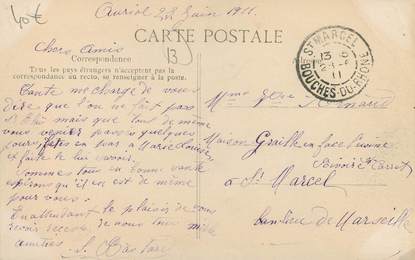 40€
Auriol 28 Juin 1911.
CARTE POSTALE
13
Chers Amis
Correspondance
Tous les pays étrangers n'acceptent pas la
correspondance au recto, se renseigner à la poste.
ST MARCEL
13
11
BOUCHES-DU-RHÔNE
Tante me charge de vous
Dire que l'on ne fait pas
St mais que tout de même
vous veniez passer quelques
jours, faites en part à Marie Louise
et faite le lui savoir.
Sommes tous en bonne santé
espérons qu'il en est de même
pour vous.
En attendant le plaisir de vous
revoir recevez de nous tous mille
amitiés
Mme
Maison Graille en face l'usine
à St Marcel
banlieue de Marseille